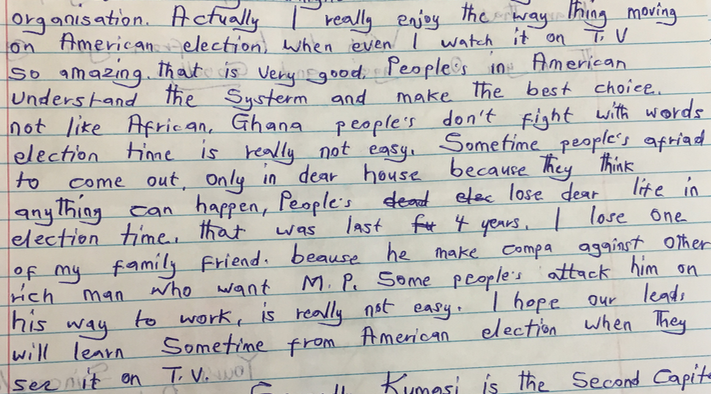 organisation. Actually I really enjoy the way thing moving
on American election, when even I watch it on T.V
So amazing. that is very good. People's in American
Understand the Systerm and make the best choice.
not like African, Ghana people's don't fight with words
election time is really not easy. Sometime people's afriad
to come out, only in dear house because They think
anything can happen, People's dead elec lose dear life in
election time. that was last 4 years. I lose one
of my family friend. beause he make compa against other
rich man who want M.P. Some people's attack him on
his way to work, is really not easy. I hope our leads
will learn Sometime from American election when They
see it on T.V.
Kumasi is the Second Capit